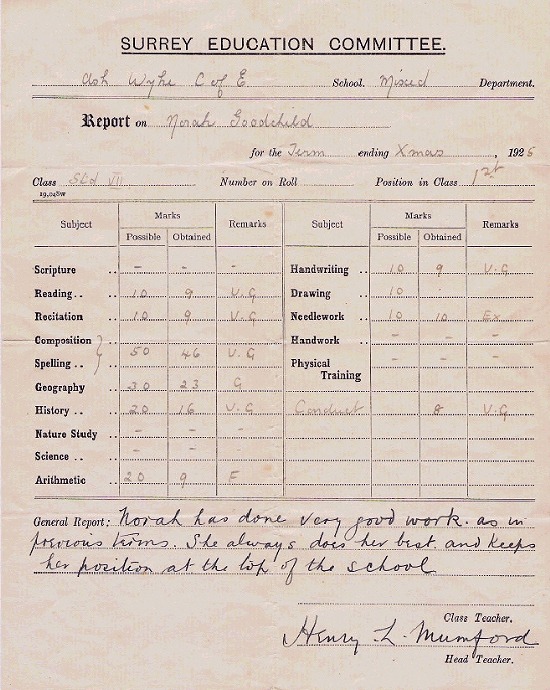 SURREY EDUCATION COMMITTEE.
Ash Wyke C of E School. Mixed Department.
Report on Norah Goodchild
for the Term ending Xmas, 1925
Class Std VII Number on Roll Position in Class 1st
29,048W
Subject Marks Remarks Subject Marks Remarks
Possible Obtained Possible Obtained
Scripture .. - - - Handwriting .. 10 9 V.G
Reading .. .. 10 9 V.G Drawing .. 10
Recitation .. 10 9 V.G Needlework .. 10 10 Ex
Composition .. Handwork .. - -
Spelling .. } 50 46 V.G Physical Training - -
Geography .. 30 23 G
History .. .. 20 16 V.G Conduct 8 V.G
Nature Study .. - -
Science .. .. - -
Arithmetic .. 20 9 F
General Report: Norah has done very good work. as in
previous terms. She always does her best and keeps
her position at the top of the school
Class Teacher.
Henry L. Mumford
Head Teacher.